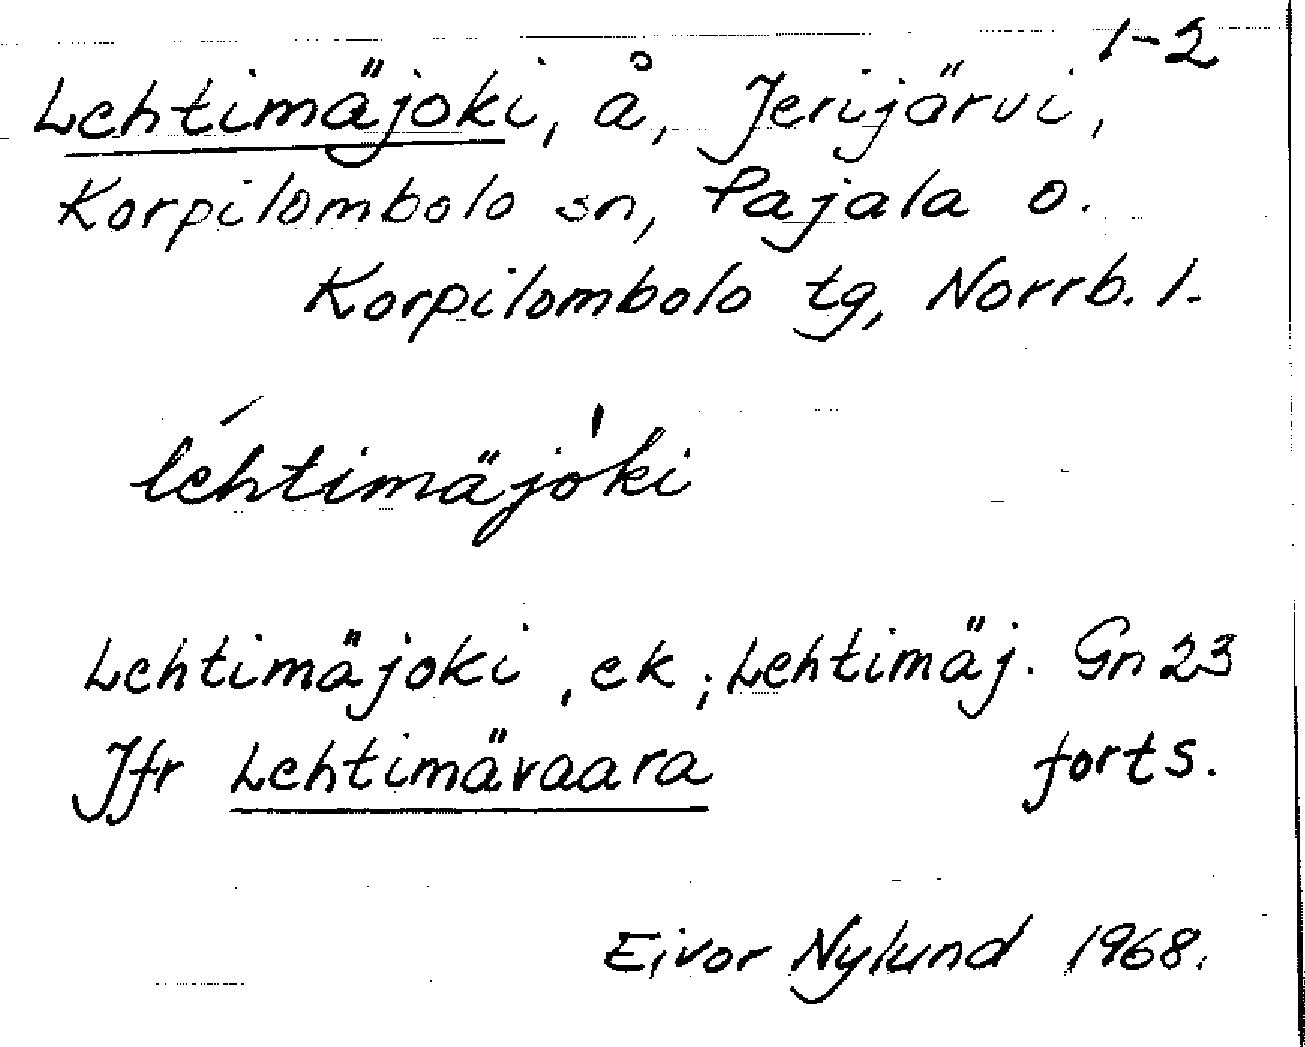 1-2
Lehtimäjoki, å, Jerijärvi,
Korpilombolo sn, Pajala o.
Korpilombolo tg, Norrb. l.
léhtimäjo̍ki
Lehtimäjoki, ek; Lehtimäj. Gn 23
Jfr Lehtimävaara forts.
Eivor Nylund 1968.